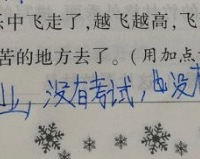 中飞走了,越飞越高,飞
苦的地方去了。(用加点
山,没有考试,也没